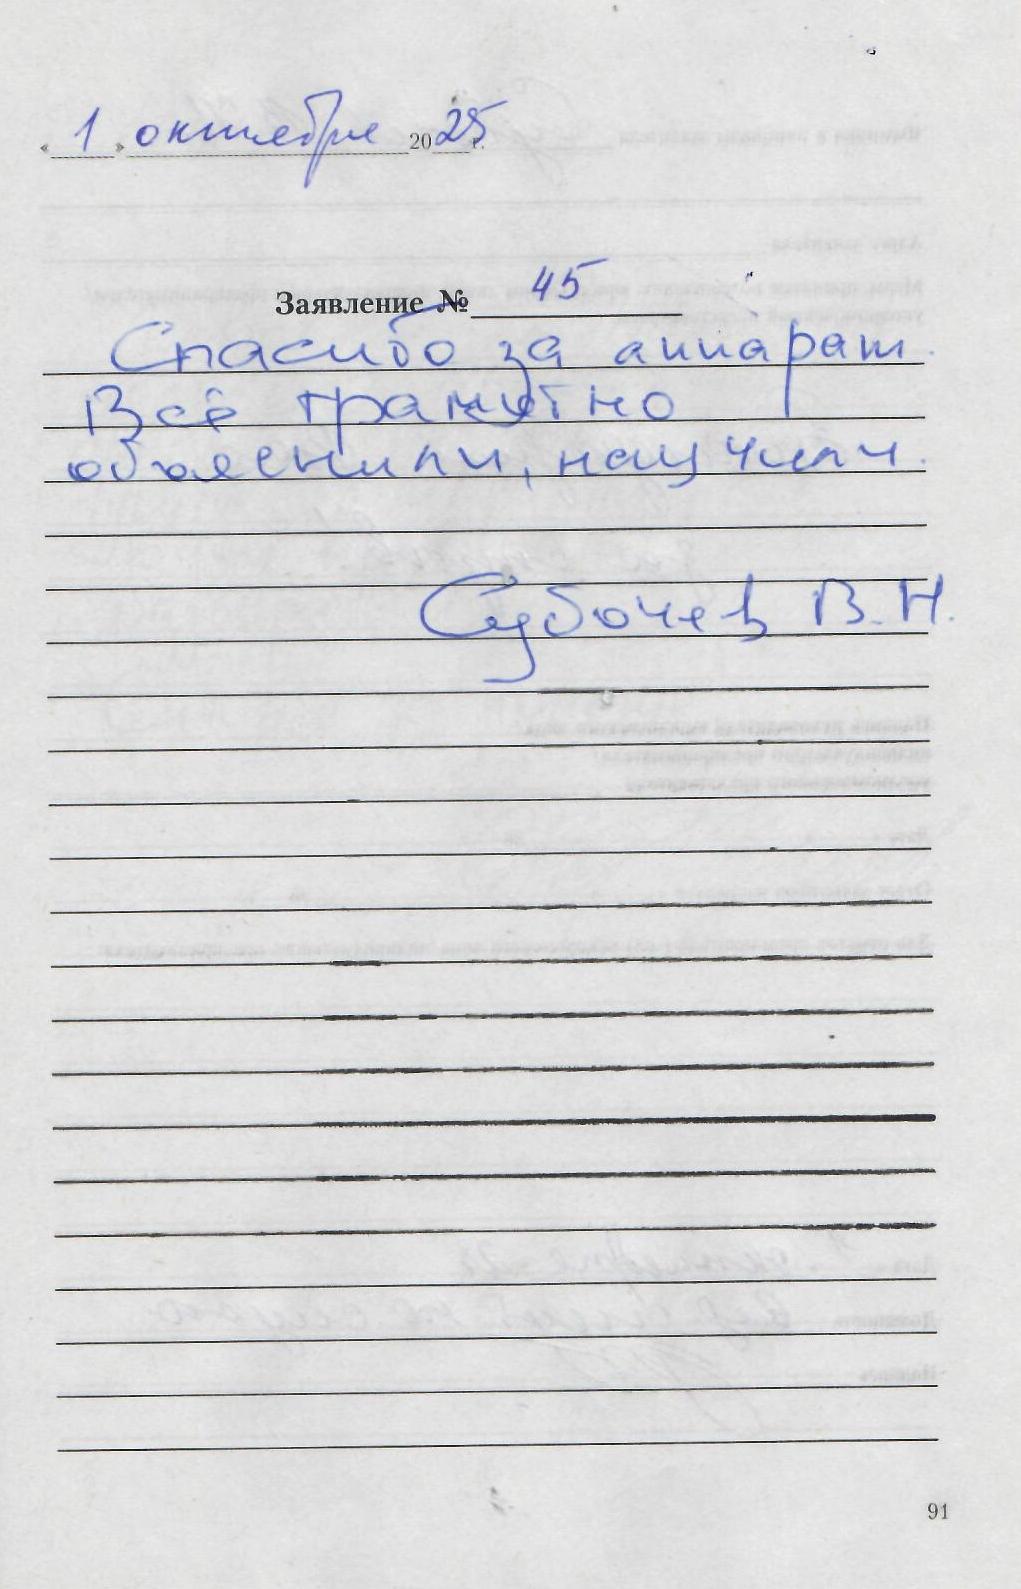 « 1 » октября 2025 г.
Заявление № 45
Спасибо за аппарат.
Всё грамотно
объяснили, научили.
Субочев В.Н.
91